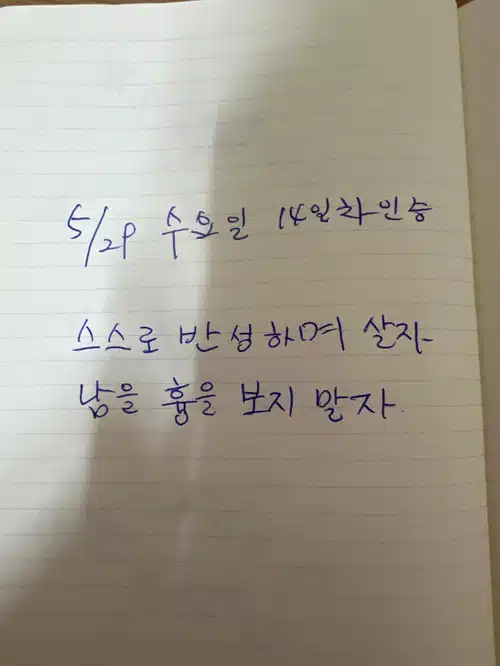 5/29 수요일 14일차 인증
스스로 반성하며 살자
남을 흉을 보지 말자.